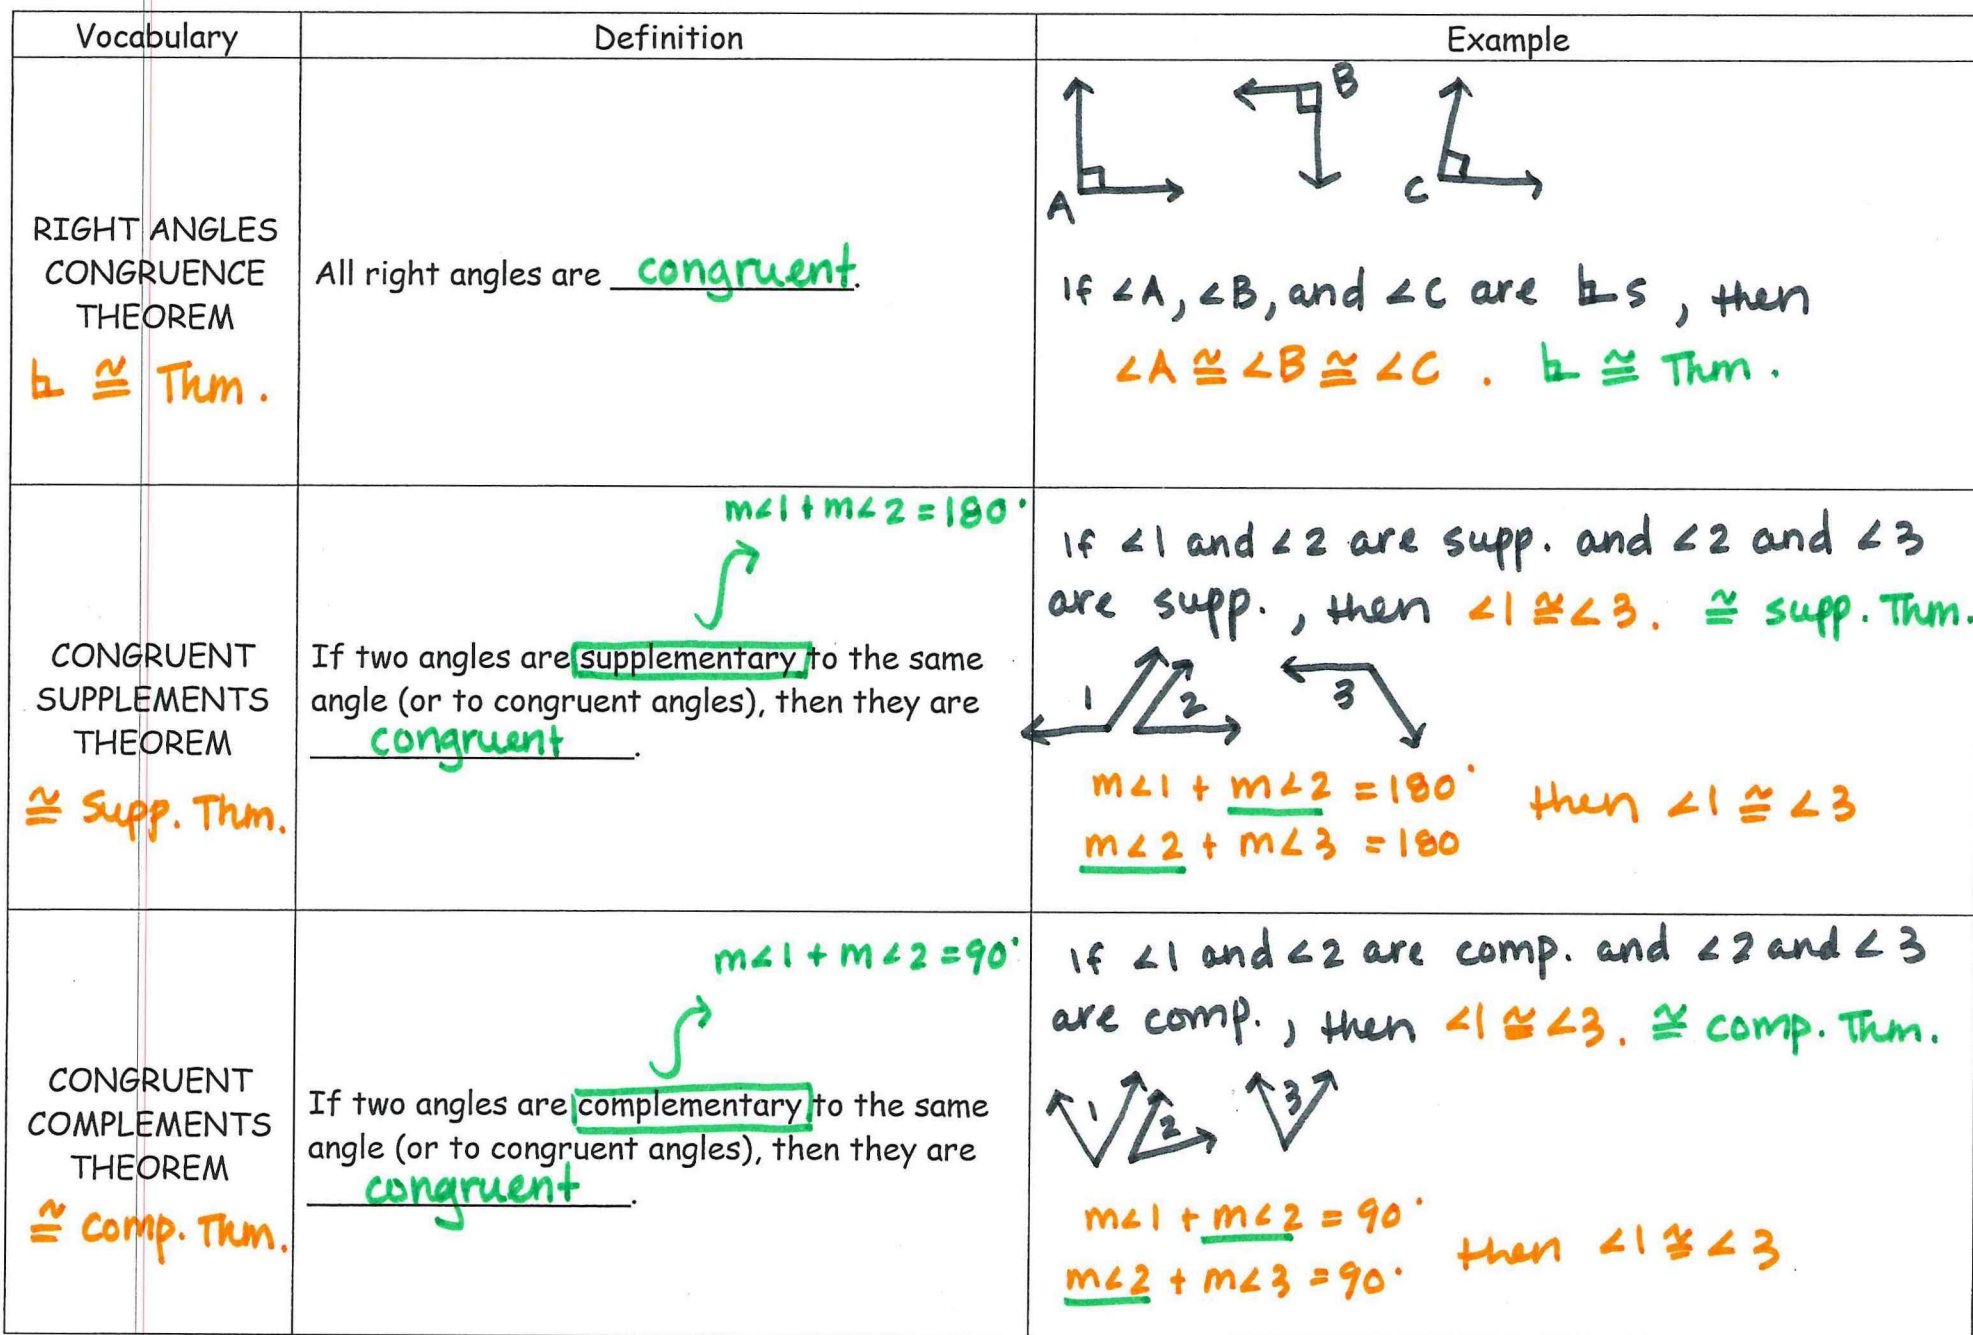 Vocabulary
Definition
Example
RIGHT ANGLES
CONGRUENCE
THEOREM
⊾ ≅ Thm.
All right angles are congruent.
B
A
C
If ∠A, ∠B, and ∠C are ⊾s, then
∠A ≅ ∠B ≅ ∠C. ⊾ ≅ Thm.
CONGRUENT
SUPPLEMENTS
THEOREM
≅ Supp. Thm.
m∠1 + m∠2 = 180°
If two angles are supplementary to the same
angle (or to congruent angles), then they are
congruent.
If ∠1 and ∠2 are supp. and ∠2 and ∠3
are supp., then ∠1 ≅ ∠3. ≅ supp. Thm.
1 2 3
m∠1 + m∠2 = 180°
m∠2 + m∠3 = 180
then ∠1 ≅ ∠3
CONGRUENT
COMPLEMENTS
THEOREM
≅ comp. Thm.
m∠1 + m∠2 = 90°
If two angles are complementary to the same
angle (or to congruent angles), then they are
congruent.
If ∠1 and ∠2 are comp. and ∠2 and ∠3
are comp., then ∠1 ≅ ∠3. ≅ comp. Thm.
1 2 3
m∠1 + m∠2 = 90°
m∠2 + m∠3 = 90°
then ∠1 ≅ ∠3